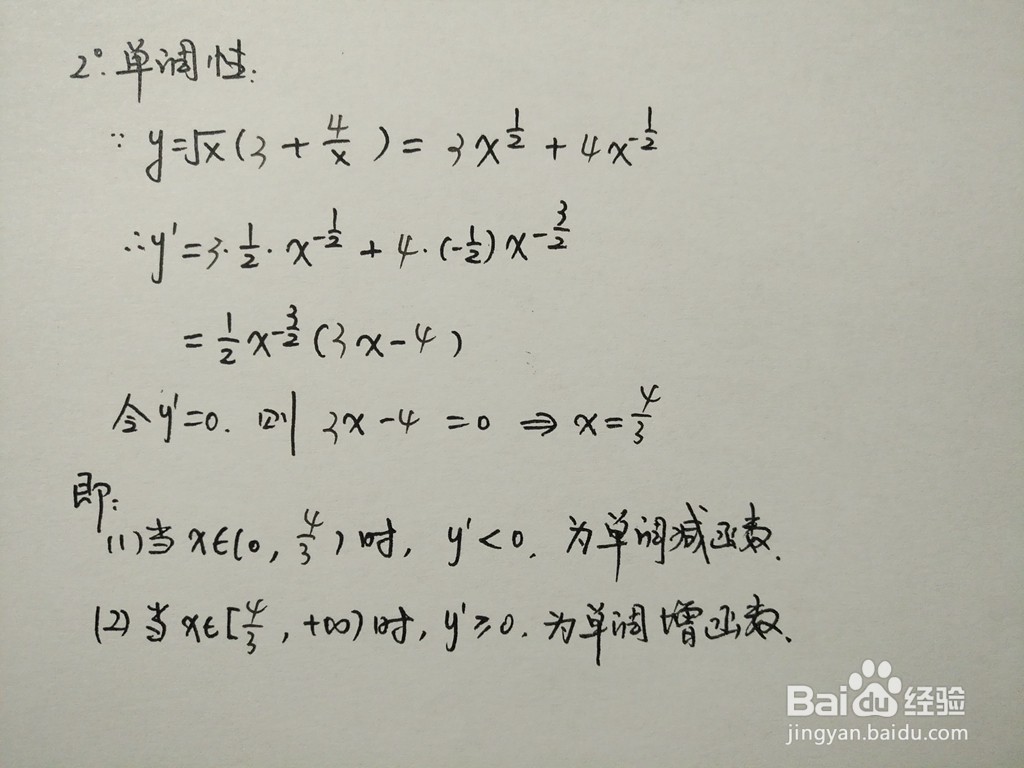 2°. 单调性:
∵ y=√x(3+4/x)=3x^(1/2)+4x^(-1/2)
∴y'=3·1/2·x^(-1/2)+4·(-1/2)x^(-3/2)
=1/2x^(-3/2)(3x-4)
令y'=0. 则 3x-4=0 ⇒ x=4/3
即:
(1)当x∈(0,4/3)时, y'<0, 为单调减函数.
(2)当x∈[4/3,+∞)时, y'≥0, 为单调增函数.
Bai du 经验
jingyan.baidu.com